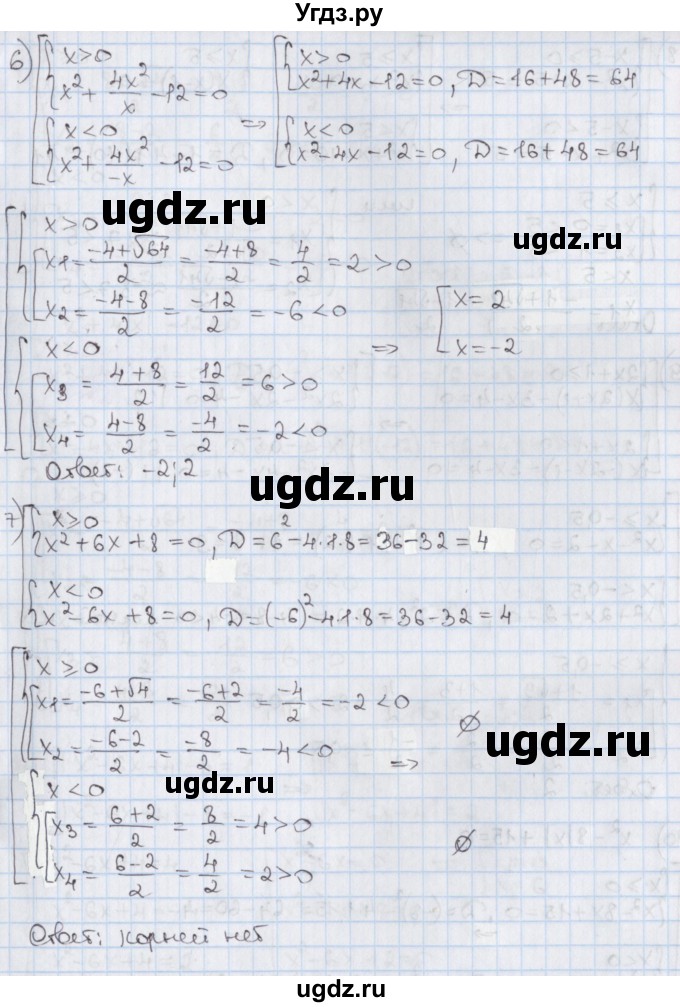 Угдз.ру
6) x>0
x² + 4x²/x - 12 = 0
x<0
x² + 4x²/-x - 12 = 0
=>
x>0
x²+4x-12=0, D=16+48=64
x<0
x²-4x-12=0, D=16+48=64
ugdz.ru
ugdz.ru
x>0
x1 = (-4+√64)/2 = (-4+8)/2 = 4/2 = 2>0
x2 = (-4-8)/2 = -12/2 = -6<0
x<0
x3 = (4+8)/2 = 12/2 = 6>0
x4 = (4-8)/2 = -4/2 = -2<0
=>
x=2
x=-2
Ответ: -2; 2
ugdz.ru
7) x≥0
x²+6x+8=0, D=6²-4·1·8=36-32=4
x<0
x²-6x+8=0, D=(-6)²-4·1·8=36-32=4
x≥0
x1 = (-6+√4)/2 = (-6+2)/2 = -4/2 = -2<0
x2 = (-6-2)/2 = -8/2 = -4<0
∅
=>
ugdz.ru
ugdz.ru
x<0
x3 = (6+2)/2 = 8/2 = 4>0
x4 = (6-2)/2 = 4/2 = 2>0
∅
Ответ: корней нет
ugdz.ru